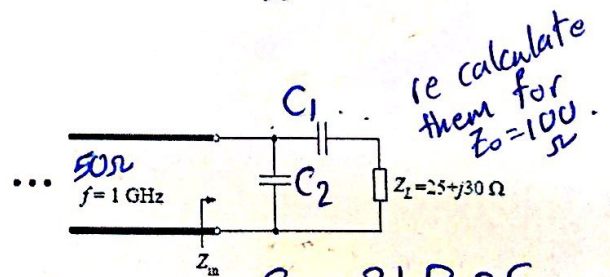 re calculate
them for
Z₀=100
Ω.
C₁
50Ω
... f= 1 GHz
C₂
Z_L=25+j30 Ω
Z_in